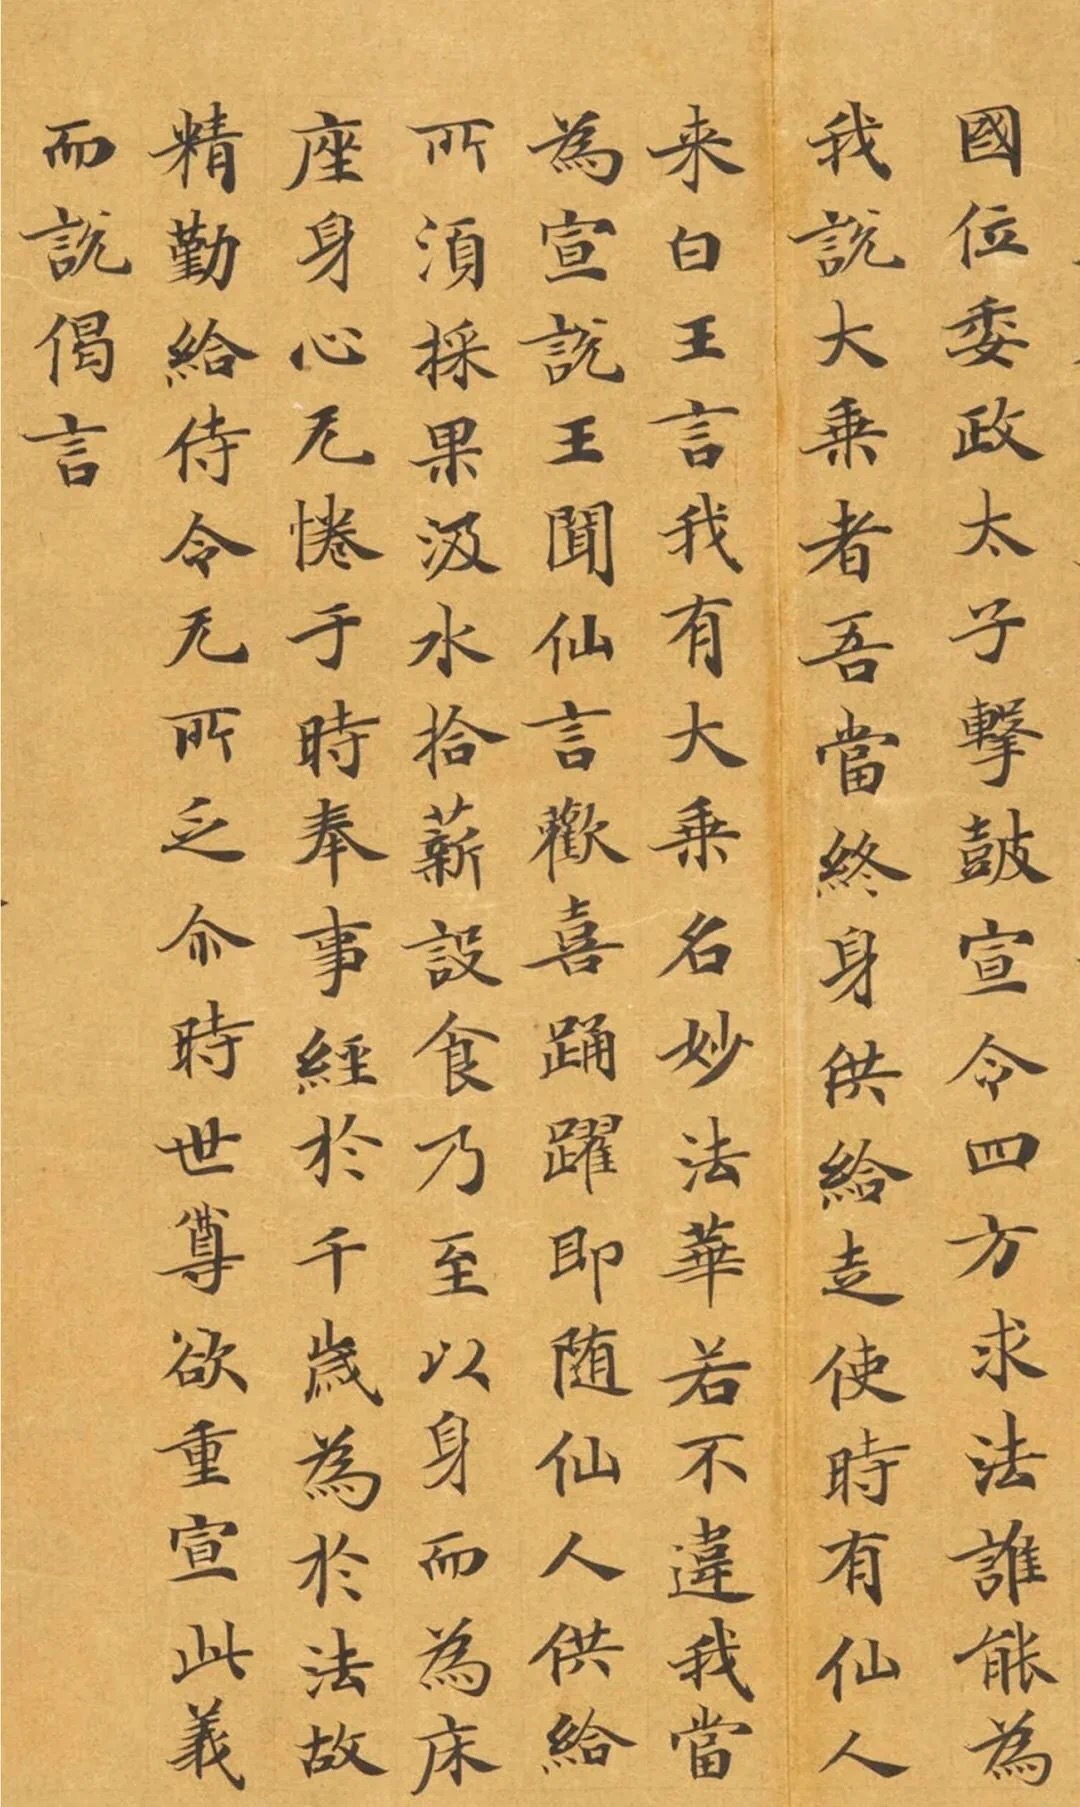 國位委政太子擊鼓宣令四方求法誰能為
我說大乘者吾當終身供給走使時有仙人
来白王言我有大乘名妙法華若不違我當
為宣說王聞仙言歡喜踊躍即随仙人供給
所湏採果汲水拾薪設食乃至以身而為床
座身心无惓于時奉事經於千歲為於法故
精勤給侍令无所乏尒時世尊欲重宣此義
而說偈言